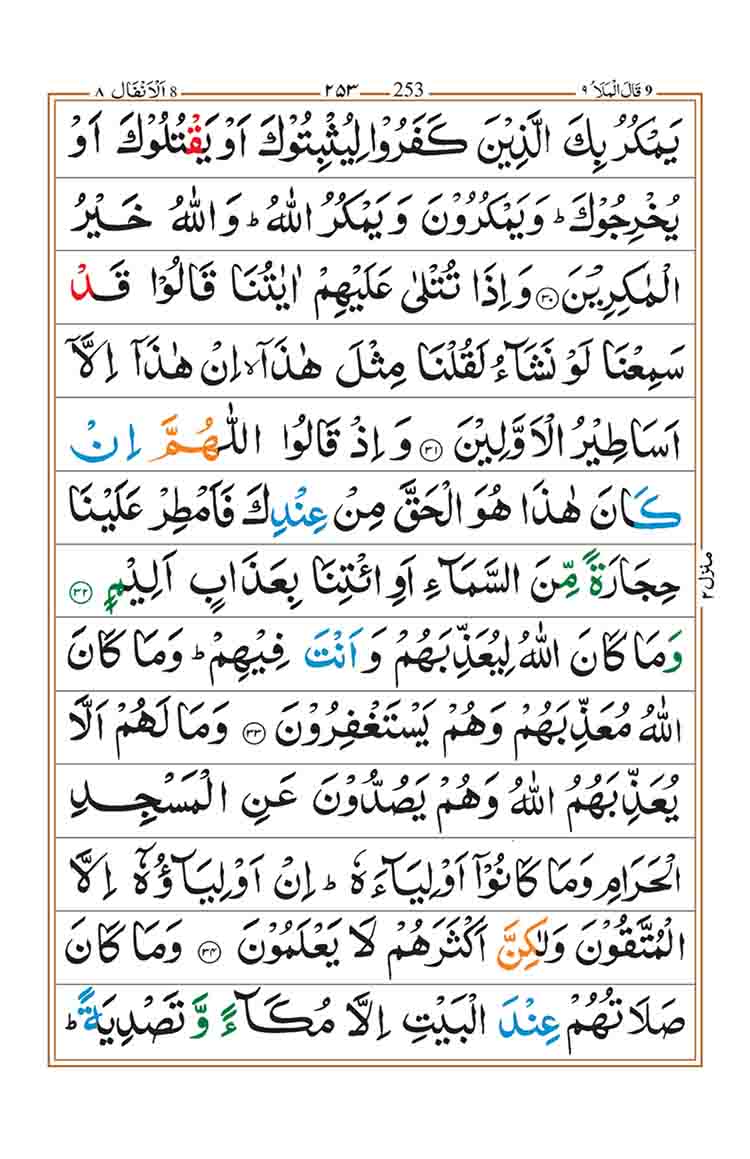 ٩ قَالَ الْمَلَاُ 9 253 ٢٥٣ 8 اَلْاَنْفَال ٨
يَمْكُرُ بِكَ الَّذِيْنَ كَفَرُوْا لِيُثْبِتُوْكَ اَوْ يَقْتُلُوْكَ اَوْ
يُخْرِجُوْكَ ؕ وَيَمْكُرُوْنَ وَيَمْكُرُ اللّٰهُ ؕ وَاللّٰهُ خَيْرُ
الْمٰكِرِيْنَ ﴿۳۰﴾ وَاِذَا تُتْلٰى عَلَيْهِمْ اٰيٰتُنَا قَالُوْا قَدْ
سَمِعْنَا لَوْ نَشَآءُ لَقُلْنَا مِثْلَ هٰذَآ ۙ اِنْ هٰذَآ اِلَّاۤ
اَسَاطِيْرُ الْاَوَّلِيْنَ ﴿۳۱﴾ وَاِذْ قَالُوا اللّٰهُمَّ اِنْ
كَانَ هٰذَا هُوَ الْحَقَّ مِنْ عِنْدِكَ فَاَمْطِرْ عَلَيْنَا
حِجَارَةً مِّنَ السَّمَآءِ اَوِ ائْتِنَا بِعَذَابٍ اَلِيْمٍ ﴿۳۲﴾
وَمَا كَانَ اللّٰهُ لِيُعَذِّبَهُمْ وَاَنْتَ فِيْهِمْ ؕ وَمَا كَانَ
اللّٰهُ مُعَذِّبَهُمْ وَهُمْ يَسْتَغْفِرُوْنَ ﴿۳۳﴾ وَمَا لَهُمْ اَلَّا
يُعَذِّبَهُمُ اللّٰهُ وَهُمْ يَصُدُّوْنَ عَنِ الْمَسْجِدِ
الْحَرَامِ وَمَا كَانُوْۤا اَوْلِيَآءَهٗ ؕ اِنْ اَوْلِيَآؤُهٗۤ اِلَّا
الْمُتَّقُوْنَ وَلٰكِنَّ اَكْثَرَهُمْ لَا يَعْلَمُوْنَ ﴿۳۴﴾ وَمَا كَانَ
صَلَاتُهُمْ عِنْدَ الْبَيْتِ اِلَّا مُكَآءً وَّتَصْدِيَةً ؕ
منزل ٢